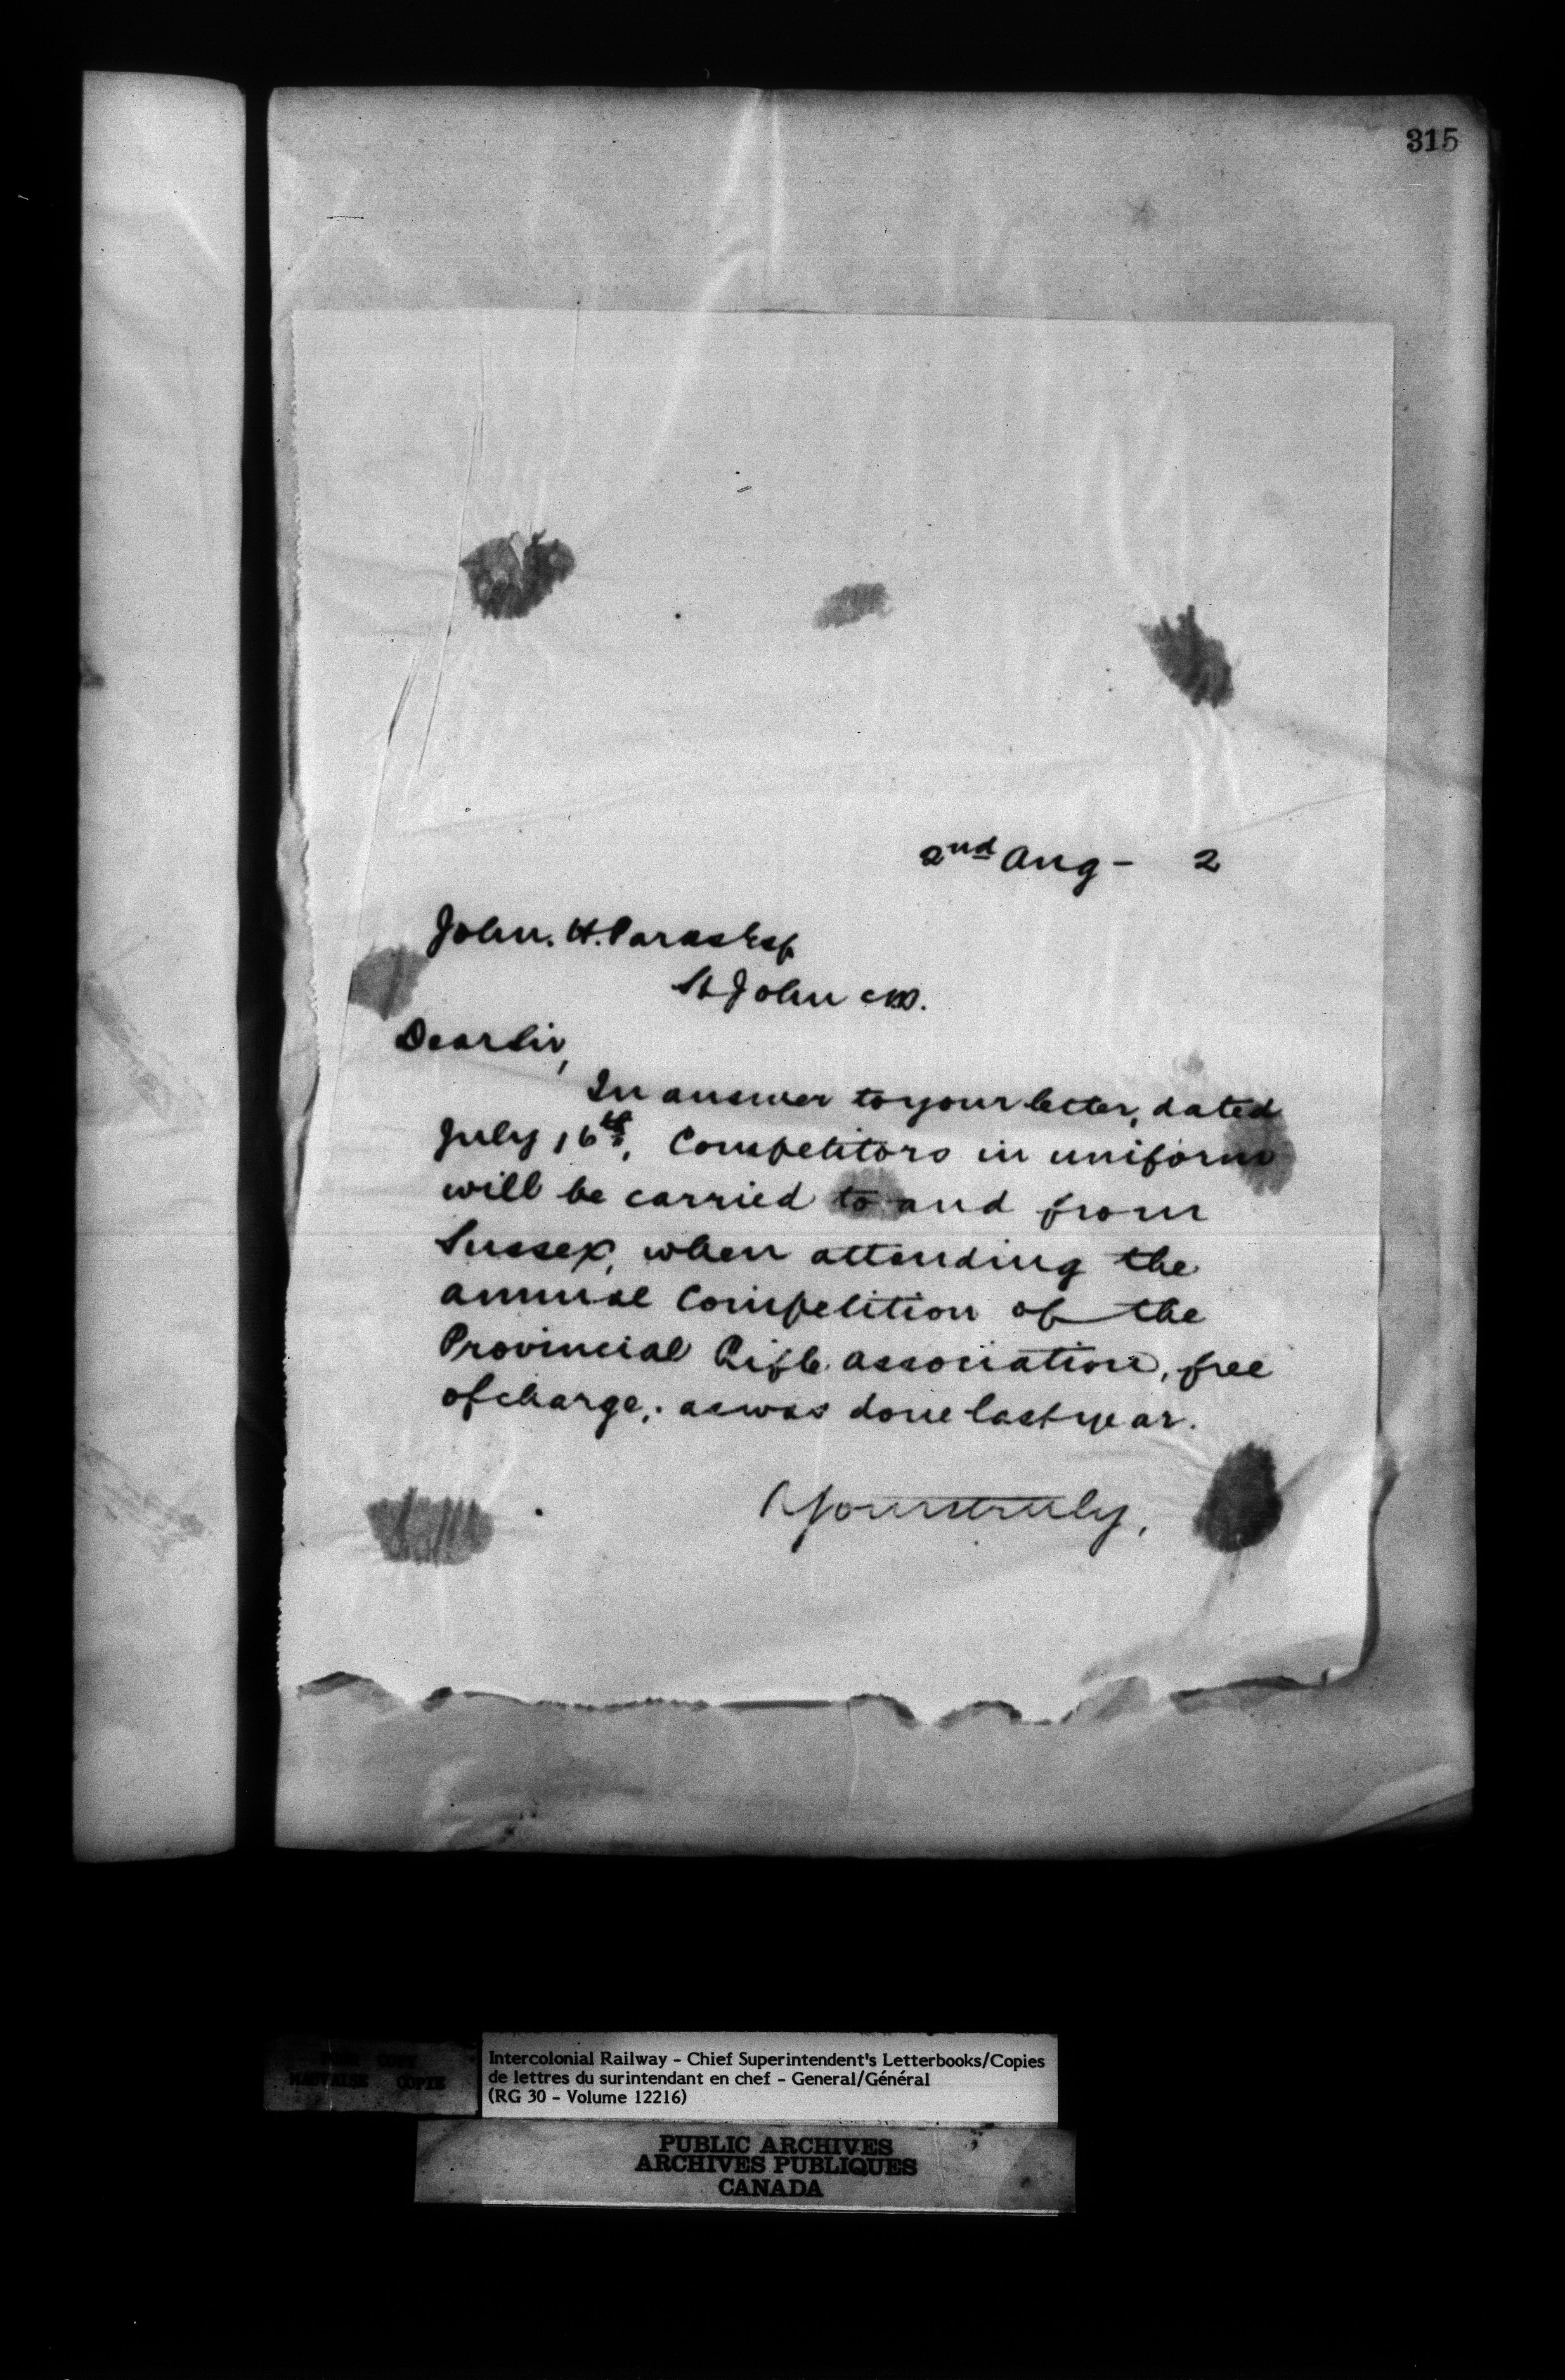 315
2nd Aug - 2
John. H. Parks Esq
St John N.B.
Dear Sir,
In answer to your letter, dated
July 16th, Competitors in uniform
will be carried to and from
Sussex, when attending the
annual Competition of the
Provincial Rifle association, free
of charge, as was done last year.
Yours truly,
COPY
MAUVAISE COPIE
Intercolonial Railway - Chief Superintendent's Letterbooks/Copies
de lettres du surintendant en chef - General/Général
(RG 30 - Volume 12216)
PUBLIC ARCHIVES
ARCHIVES PUBLIQUES
CANADA